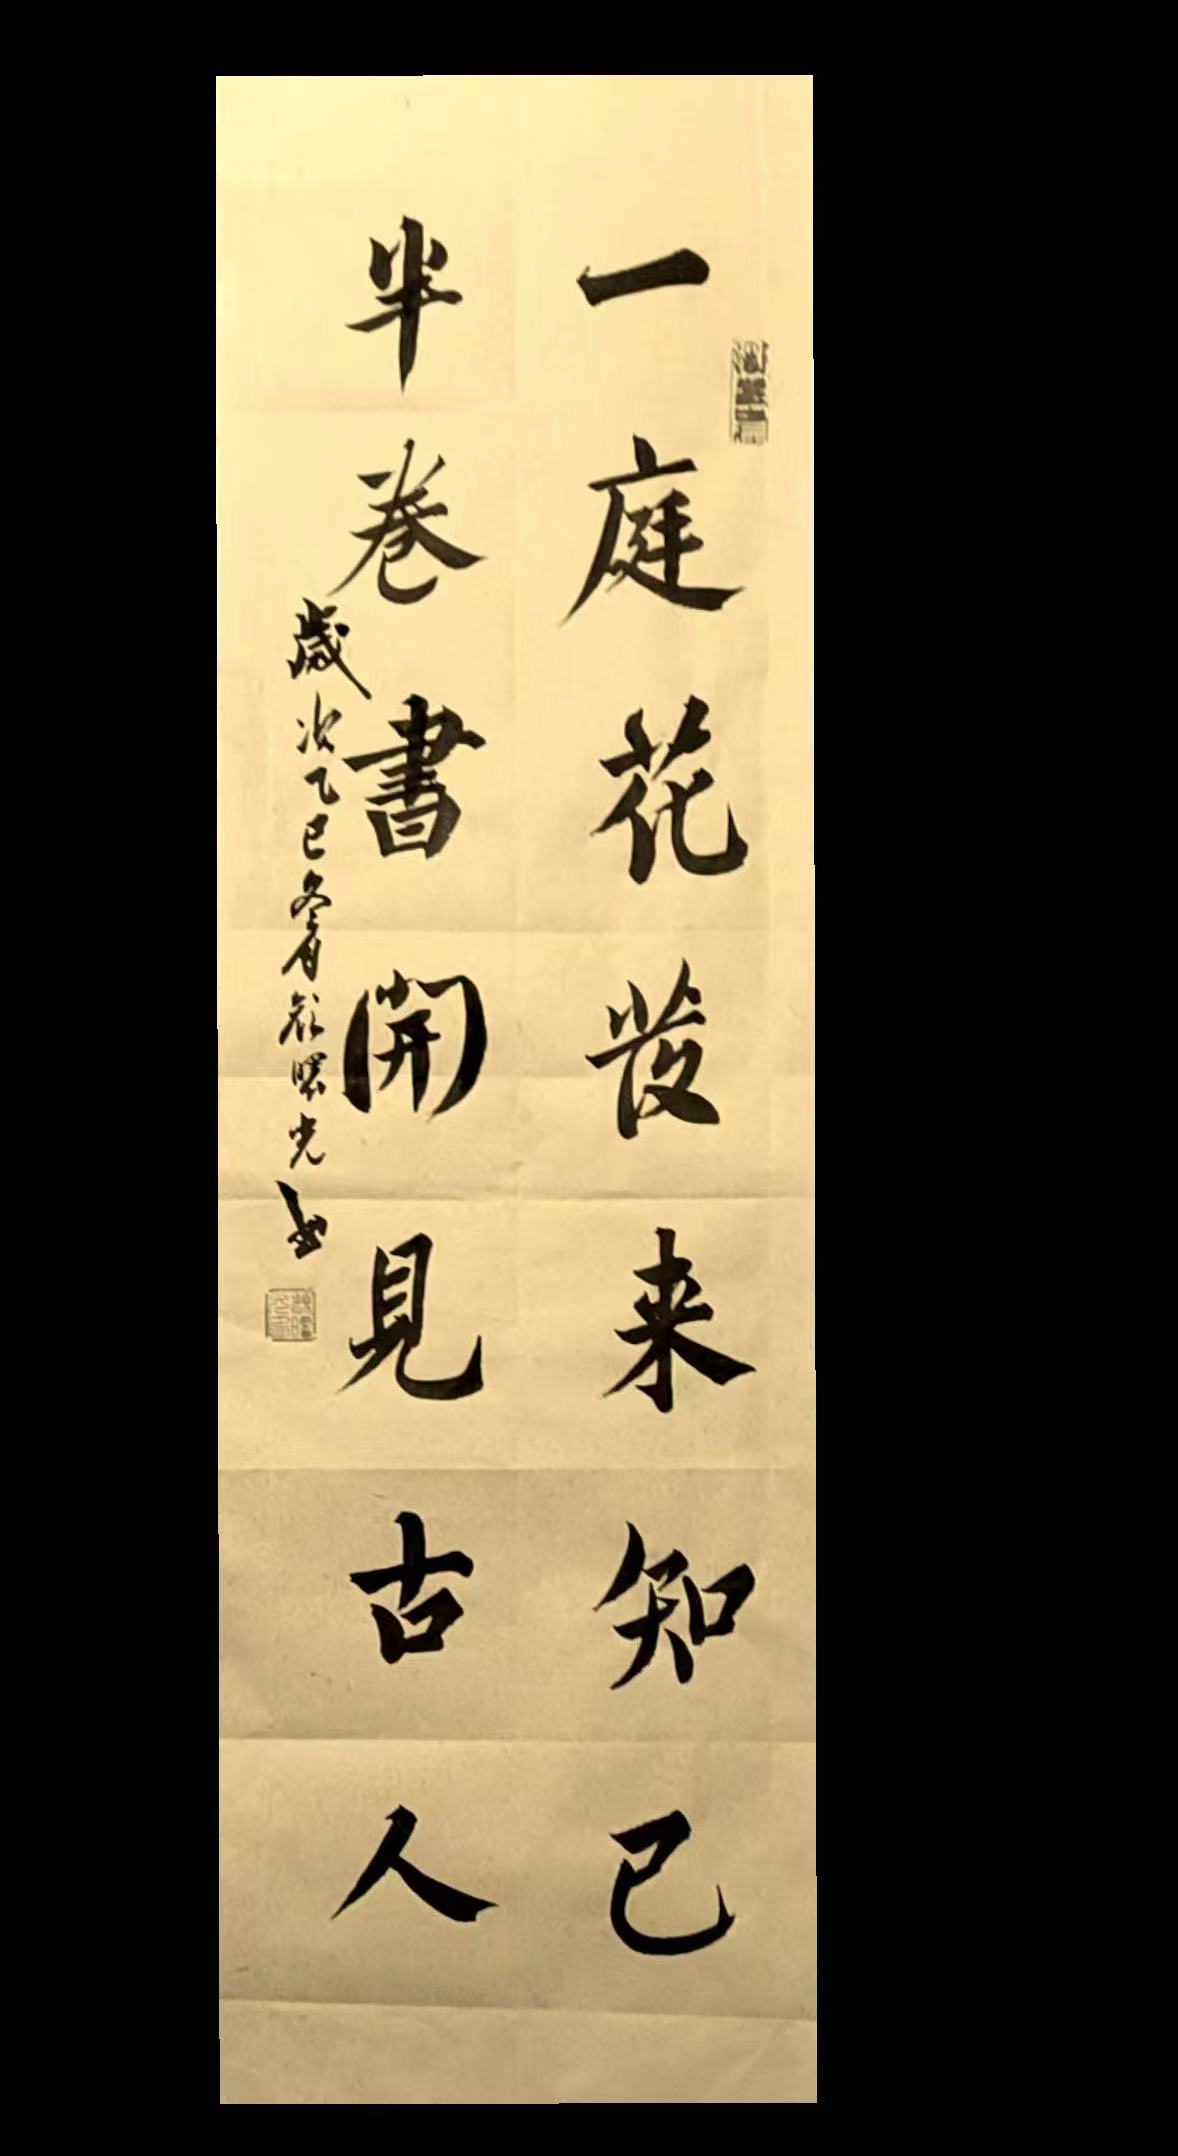 一庭花發来知己
半卷書開見古人
歲次乙巳冬月顧曙光書